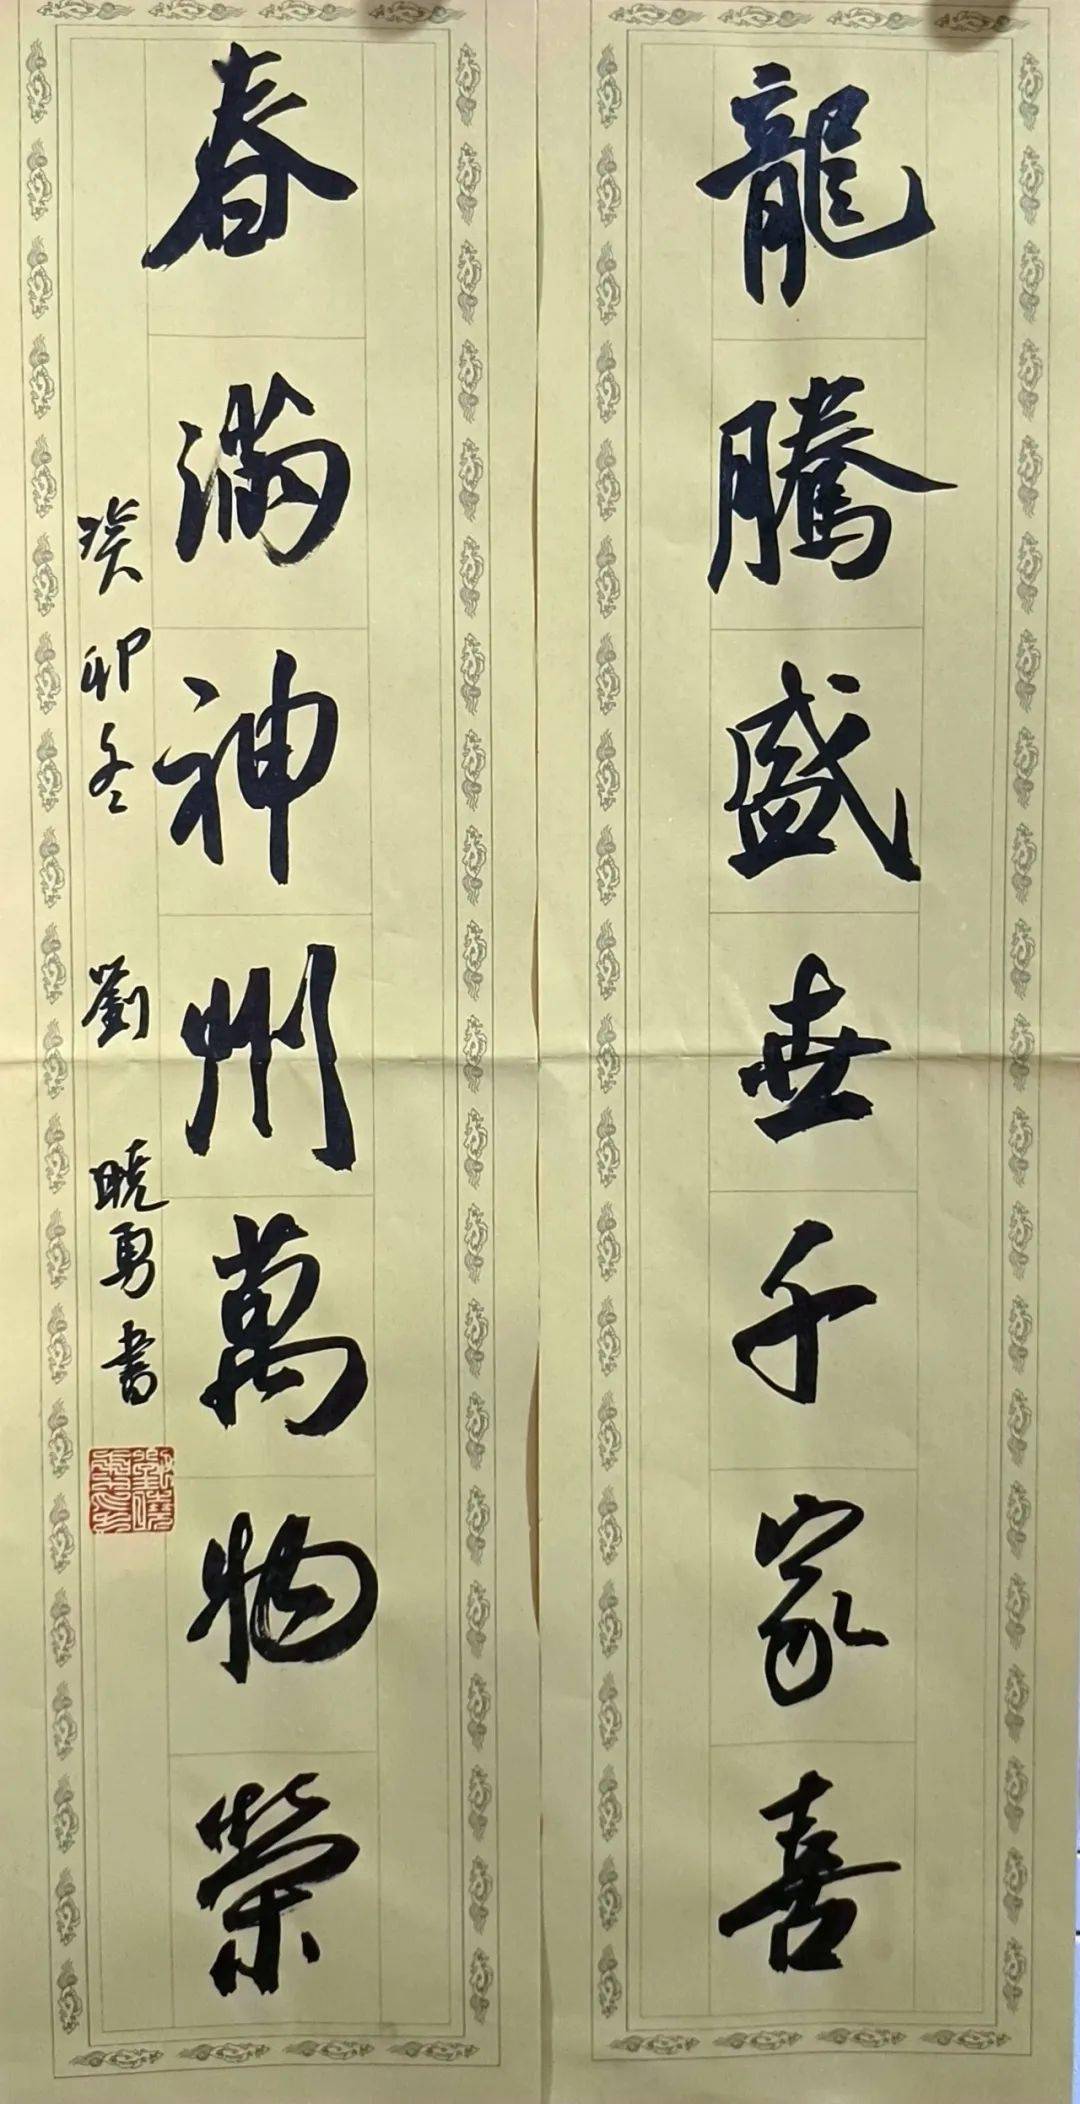 龍騰盛世千家喜
春滿神州萬物榮
癸卯冬 劉曉勇書